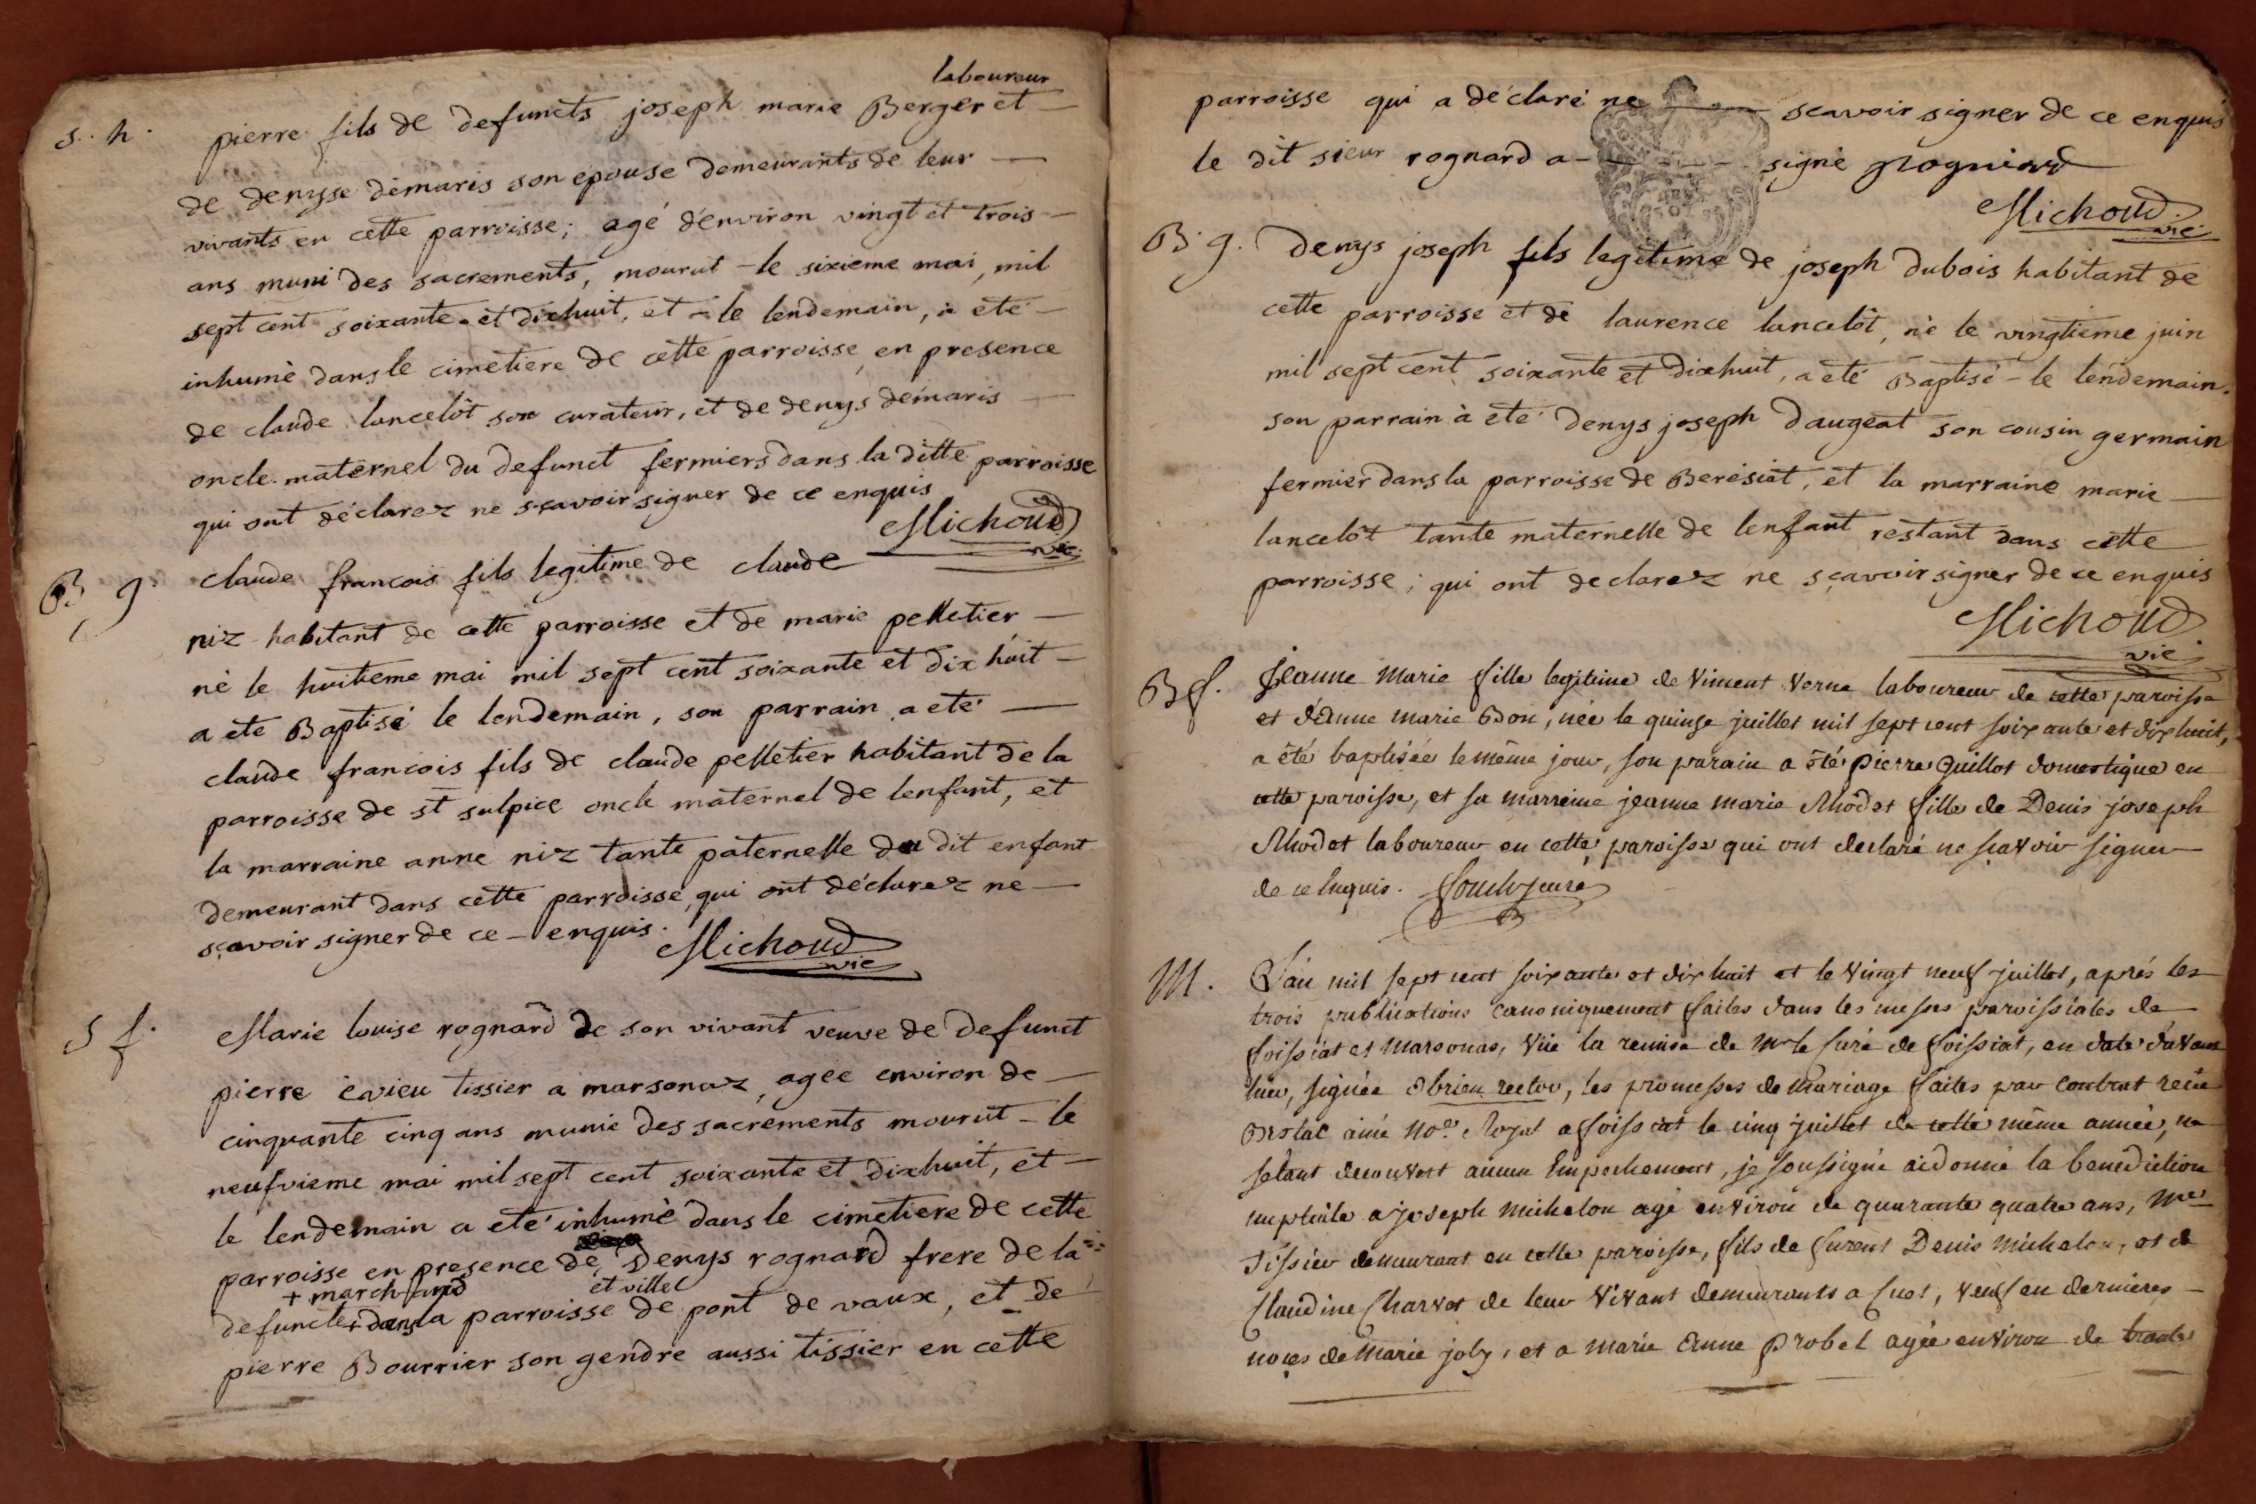 laboureur
s. h. pierre fils de defuncts joseph marie Berger et
de denyse démaris son epouse demeurants de leur
vivants en cette parroisse; agé d'environ vingt et trois
ans muni des sacrements, mourut le sixieme mai mil
sept cent soixante et dixhuit, et le lendemain, a eté
inhumé dans le cimetiere de cette parroisse en presence
de claude lancelot son curateur, et de denys démaris
oncle maternel du defunct fermiers dans la ditte parroisse
qui ont déclarez ne sçavoir signer de ce enquis
Michoud
vic
B g. claude francois fils legitime de claude
niz habitant de cette parroisse et de marie pelletier
né le huitieme mai mil sept cent soixante et dix huit
a ete Baptisé le lendemain, son parrain a eté
claude francois fils de claude pelletier habitant de la
parroisse de st sulpice oncle maternel de lenfant, et
la marraine anne niz tante paternelle du dit enfant
demeurant dans cette parroisse, qui ont déclarez ne
sçavoir signer de ce enquis.
Michoud
vic
S f. Marie louise rognard de son vivant veuve de defunct
pierre evieu tissier a marsonaz, agée environ de
cinquante cinq ans munie des sacrements mourut le
neufvieme mai mil sept cent soixante et dixhuit, et
le lendemain a eté inhumé dans le cimetiere de cette
parroisse en presence de Denys rognard frere de la
+ marchand et ville
defuncte + dans la parroisse de pont de vaux, et de
pierre Bourrier son gendre aussi tissier en cette
parroisse qui a déclaré ne sçavoir signer de ce enquis
le dit sieur rognard a signé Rogniard
Michoud
vic
B. g. Denys joseph fils legitime de joseph dubois habitant de
cette parroisse et de laurence lancelot, né le vingtieme juin
mil sept cent soixante et dixhuit, a eté Baptisé le lendemain.
son parrain à eté Denys joseph Daugeat son cousin germain
fermier dans la parroisse de Berésiat, et la marraine marie
lancelot tante maternelle de lenfant restant dans cette
parroisse; qui ont declarez ne sçavoir signer de ce enquis
Michoud
vic
B f. Jeanne Marie fille legitime de Vincent Verne laboureur de cette paroisse
et d'Anne marie Bon, née le quinze juillet mil sept cent soixante et dix huit,
a été baptisée le même jour, son parain a été pierre Guillot domestique en
cette paroisse, et sa marreine jeanne marie Rhodet fille de Denis joseph
Rhodet laboureur en cette paroisse qui ont declaré ne sçavoir signer
de ce Enquis.
M. L'an mil sept cent soixante et dix huit et le vingt neuf juillet, aprés les
trois publications canoniquement faites dans les messes paroissiales de
foissiat et marsonas, vüe la remise de Mr le Curé de foissiat, en date d'avant
hier, signée Obrien rector, les promesses de mariage faites par contrat recüe
ainé Nore Royal a foissiat le cinq juillet de cette même année, ne
s'étant decouvert aucun Empechement, je soussigné ai donné la benediction
nuptiale a joseph michelon agé environ de quarante quatre ans, Me
Tissier demeurant en cette paroisse, fils de furent Denis michelon, et de
Claudine Charvet de leur vivant demeurants a Cuet, veuf en dernieres
noces de Marie joly, et a marie Anne probel agée environ de trente